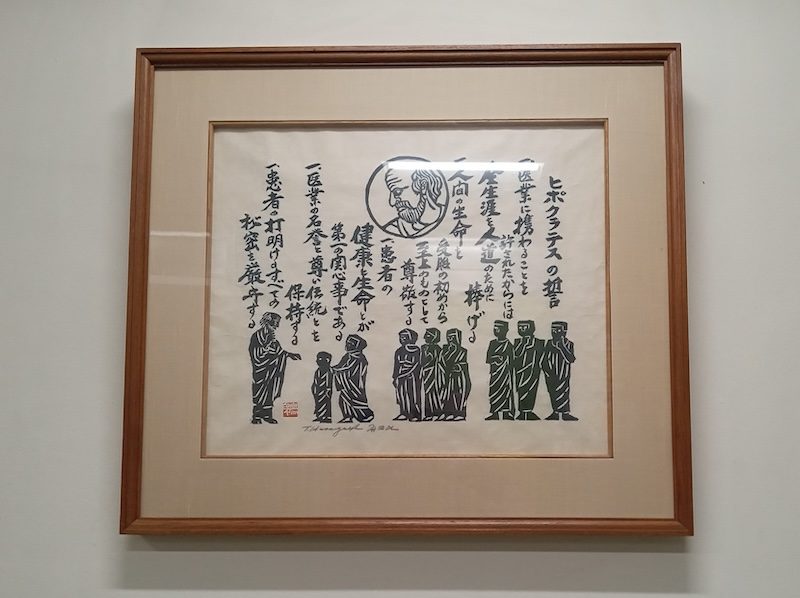 ヒポクラテスの誓
一、医業に携わることを
許されたからには
全生涯を人道のために
捧げる
一、人間の生命を
受胎の初めから
至上のものとして
尊敬する
一、患者の
健康と生命とが
第一の関心事である
一、医業の名誉と尊い伝統とを
保持する
一、患者の打明けるすべての
秘密を厳守する